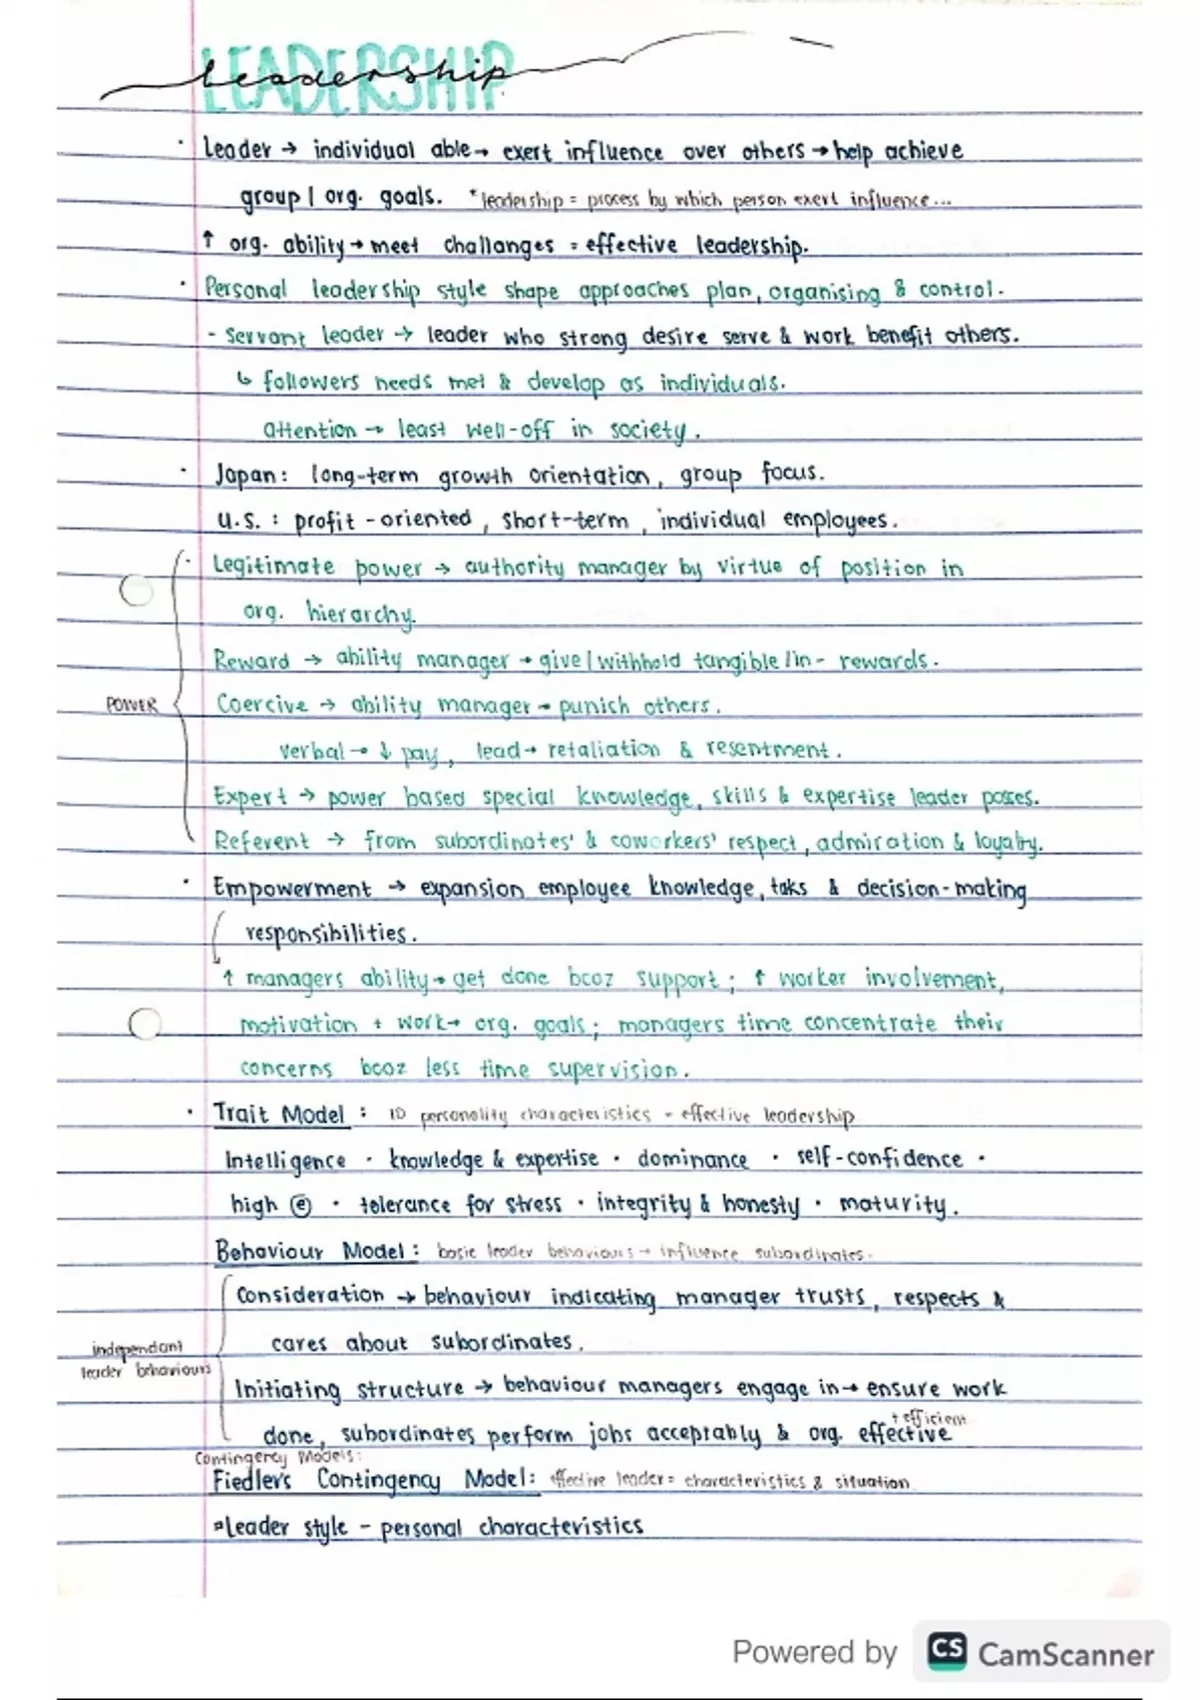 LEADERSHIP
leadership
· Leader → individual able → exert influence over others → help achieve
group | org. goals. *leadership = process by which person exert influence...
↑ org. ability → meet challanges = effective leadership.
· Personal leadership style shape approaches plan, organising & control.
- Servant leader → leader who strong desire serve & work benefit others.
↳ followers needs met & develop as individuals.
attention → least well-off in society.
· Japan: long-term growth orientation, group focus.
U.S. : profit-oriented, short-term, individual employees.
· Legitimate power → authority manager by virtue of position in
org. hierarchy.
Reward → ability manager → give | withhold tangible/in- rewards.
POWER
Coercive → ability manager → punish others.
verbal → ↓ pay, lead → retaliation & resentment.
Expert → power based special knowledge, skills & expertise leader posses.
Referent → from subordinates' & coworkers' respect, admiration & loyalty.
· Empowerment → expansion employee knowledge, taks & decision-making
responsibilities.
↑ managers ability → get done bcoz support; ↑ worker involvement,
motivation + work → org. goals; managers time concentrate their
concerns bcoz less time supervision.
· Trait Model : 10 personality characteristics - effective leadership
Intelligence · knowledge & expertise · dominance · self-confidence ·
high ⓔ · tolerance for stress · integrity & honesty · maturity.
Behaviour Model : basic leader behaviours → influence subordinates.
Consideration → behaviour indicating manager trusts, respects &
cares about subordinates.
independant
leader behaviours
Initiating structure → behaviour managers engage in → ensure work
done, subordinates perform jobs acceptably & org. effective + efficient
Contingency Models:
Fiedler's Contingency Model: effective leader = characteristics & situation
Leader style - personal characteristics
Powered by CS CamScanner